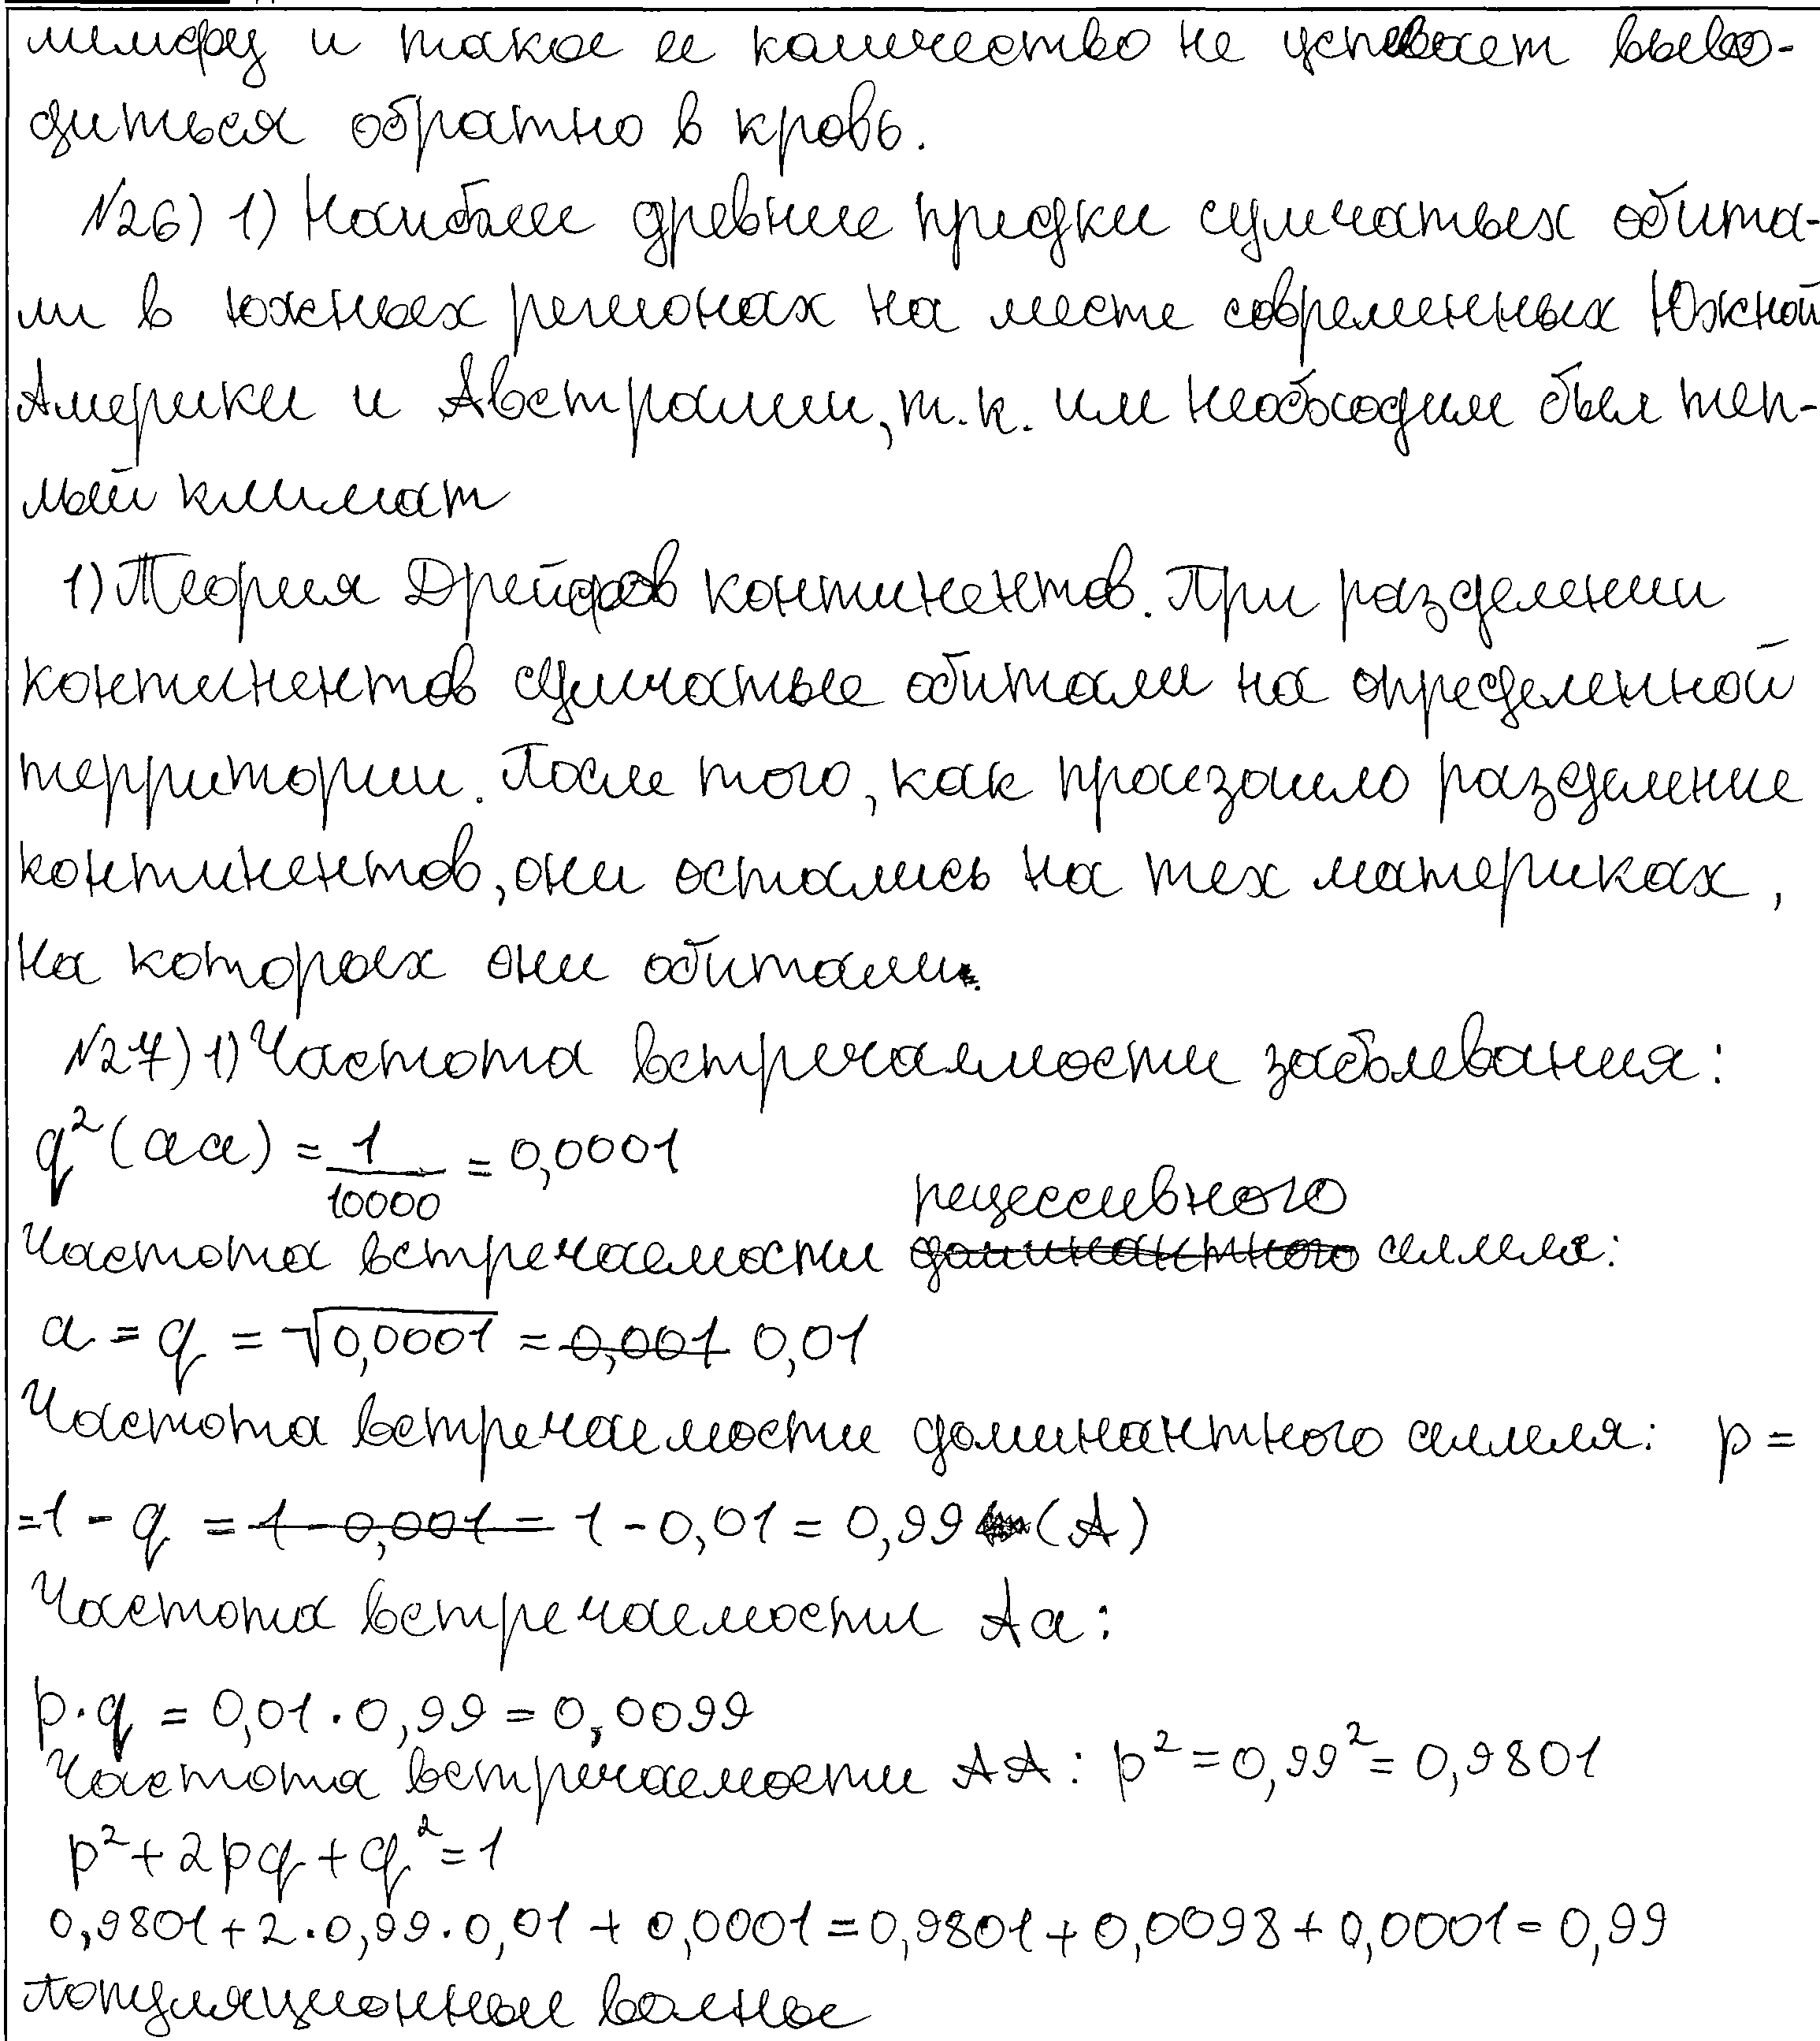 лимфу и такое ее количество не успевает выво-
диться обратно в кровь.
№26) 1) Наиболее древние предки сумчатых обита-
ли в южных регионах на месте современных Южной
Америки и Австралии, т.к. им необходим был теп-
лый климат
1) Теория Дрейфов континентов. При разделении
континентов сумчатые обитали на определенной
территории. После того, как произошло разделение
континентов, они остались на тех материках,
на которых они обитали.
№27) 1) Частота встречаемости заболевания:
q²(aa) = 1/10000 = 0,0001
рецессивного
Частота встречаемости доминантного аллеля:
a = q = √0,0001 = 0,001 0,01
Частота встречаемости доминантного аллеля: p =
=1 - q = 1 - 0,001 = 1 - 0,01 = 0,99 (A)
Частота встречаемости Aa:
p·q = 0,01·0,99 = 0,0099
Частота встречаемости AA: p² = 0,99² = 0,9801
p² + 2pq + q² = 1
0,9801 + 2·0,99·0,01 + 0,0001 = 0,9801 + 0,0098 + 0,0001 = 0,99
Популяционные волны